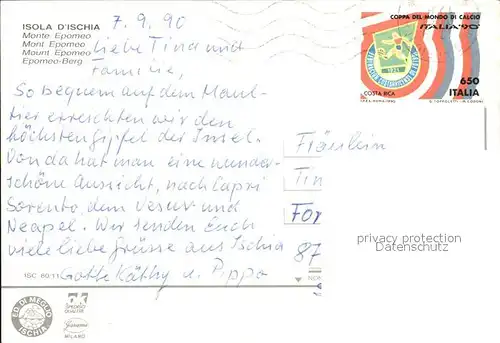 ISOLA D'ISCHIA
Monte Epomeo
Mont Epomeo
Mount Epomeo
Epomeo-Berg
7.9.90
Liebe Tina und
Familie,
So bequem auf dem Maul-
tier erreichten wir den
höchsten Gipfel der Insel.
Von da hat man eine wunder-
schöne Aussicht, nach Capri
Sorento, dem Vesuv und
Neapel. Wir senden Euch
viele liebe Grüsse aus Ischia
Gotte Käthy u. Pippo
ISC 60/11
ED. DI MEGLIO
ISCHIA
MILANO
COPPA DEL MONDO DI CALCIO
ITALIA '90
COSTA RICA
650
ITALIA
Fräulein
Tin
For
87
privacy protection
Datenschutz